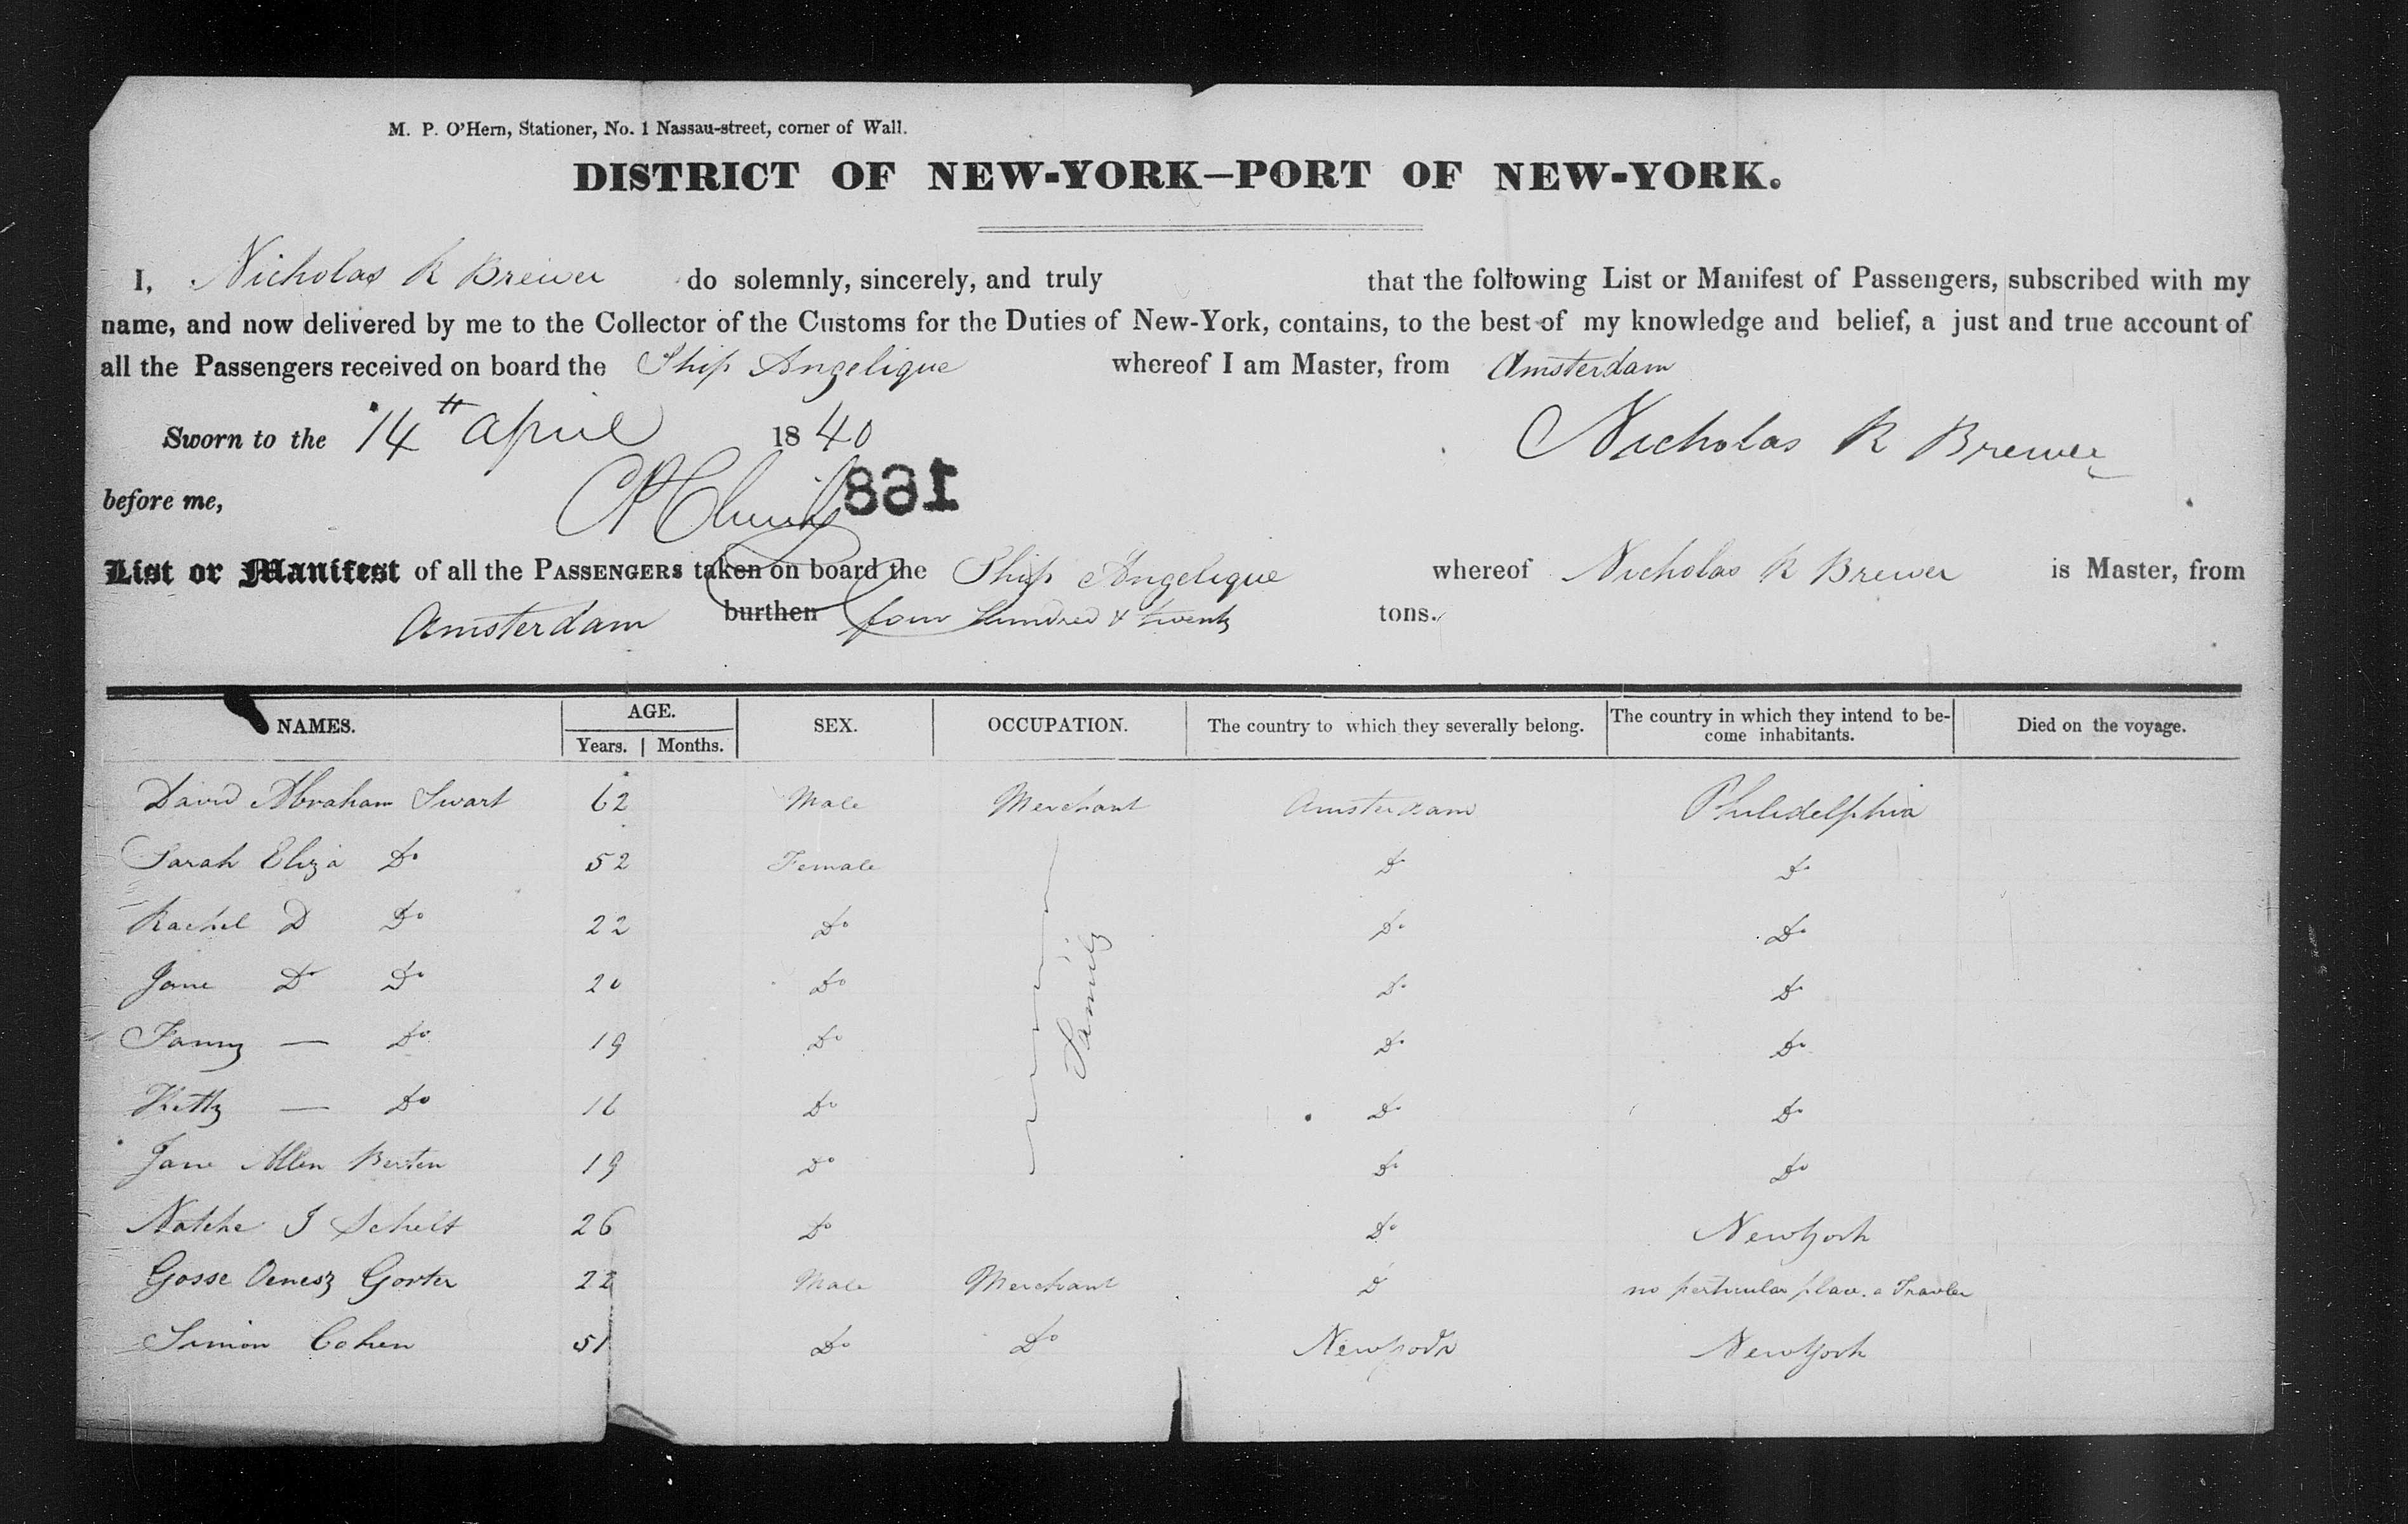 M. P. O'Hern, Stationer, No. 1 Nassau-street, corner of Wall.
DISTRICT OF NEW-YORK—PORT OF NEW-YORK.
I, Nicholas R Brewer do solemnly, sincerely, and truly that the following List or Manifest of Passengers, subscribed with my
name, and now delivered by me to the Collector of the Customs for the Duties of New-York, contains, to the best of my knowledge and belief, a just and true account of
all the Passengers received on board the Ship Angelique whereof I am Master, from Amsterdam
Sworn to the 14th april 1840 Nicholas R Brewer
before me,
168
List or Manifest of all the PASSENGERS taken on board the Ship Angelique whereof Nicholas R Brewer is Master, from
Amsterdam burthen four hundred & twenty tons.
NAMES. AGE. Years. Months. SEX. OCCUPATION. The country to which they severally belong. The country in which they intend to become inhabitants. Died on the voyage.
David Abraham Swart 62 Male Merchant Amsterdam Philidelphia
Sarah Eliza Do 52 Female Do Do
Rachel D Do 22 Do Do Do
Jane Do Do 20 Do Do Do
Family
Fanny — Do 19 Do Do Do
Kitty — Do 16 Do Do Do
Jane Allen 19 Do Do Do
26 Do Do New York
Gosse Gorter 22 Male Merchant Do no perticular place. a Travler
Simon Cohen 51 Do Do New York New York